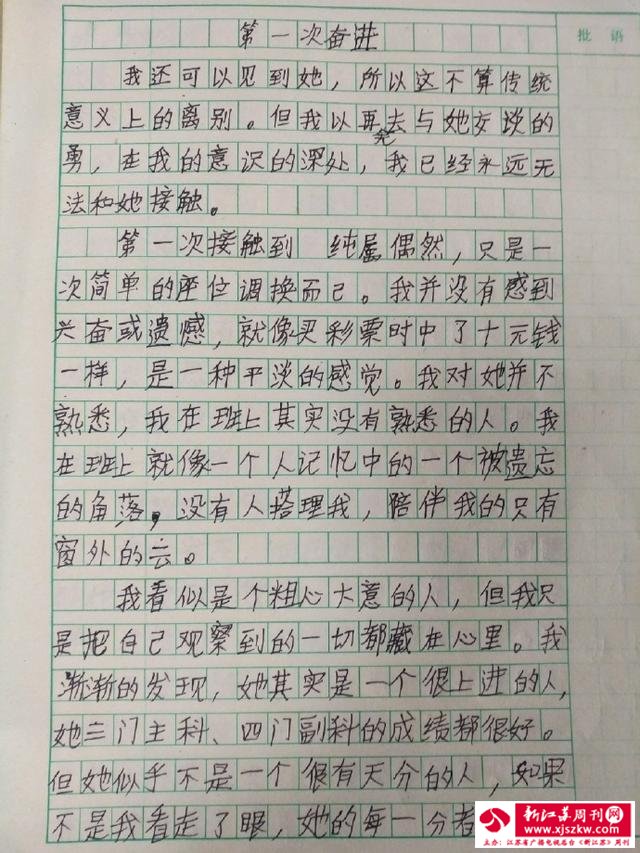 批 语
第一次奋进
我还可以见到她，所以这不算传统
意义上的离别。但我以再去与她交谈的
完
勇，在我的意识的深处，我已经永远无
法和她接触。
第一次接触到 纯属偶然，只是一
次简单的座位调换而已。我并没有感到
兴奋或遗憾，就像买彩票时中了十元钱
一样，是一种平淡的感觉。我对她并不
熟悉，我在班上其实没有熟悉的人。我
在班上就像一个人记忆中的一个被遗忘
的角落，没有人搭理我，陪伴我的只有
窗外的云。
我看似是个粗心大意的人，但我只
是把自己观察到的一切都藏在心里。我
渐渐的发现，她其实是一个很上进的人，
她三门主科、四门副科的成绩都很好。
但她似乎不是一个很有天分的人，如果
不是我看走了眼，她的每一分
新江苏周刊网
www.xjszkw.com
主办：江苏省广播电视总台《新江苏》周刊